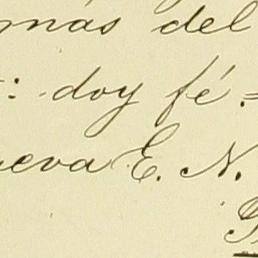 más del
: doy fé.=
eva E. N.